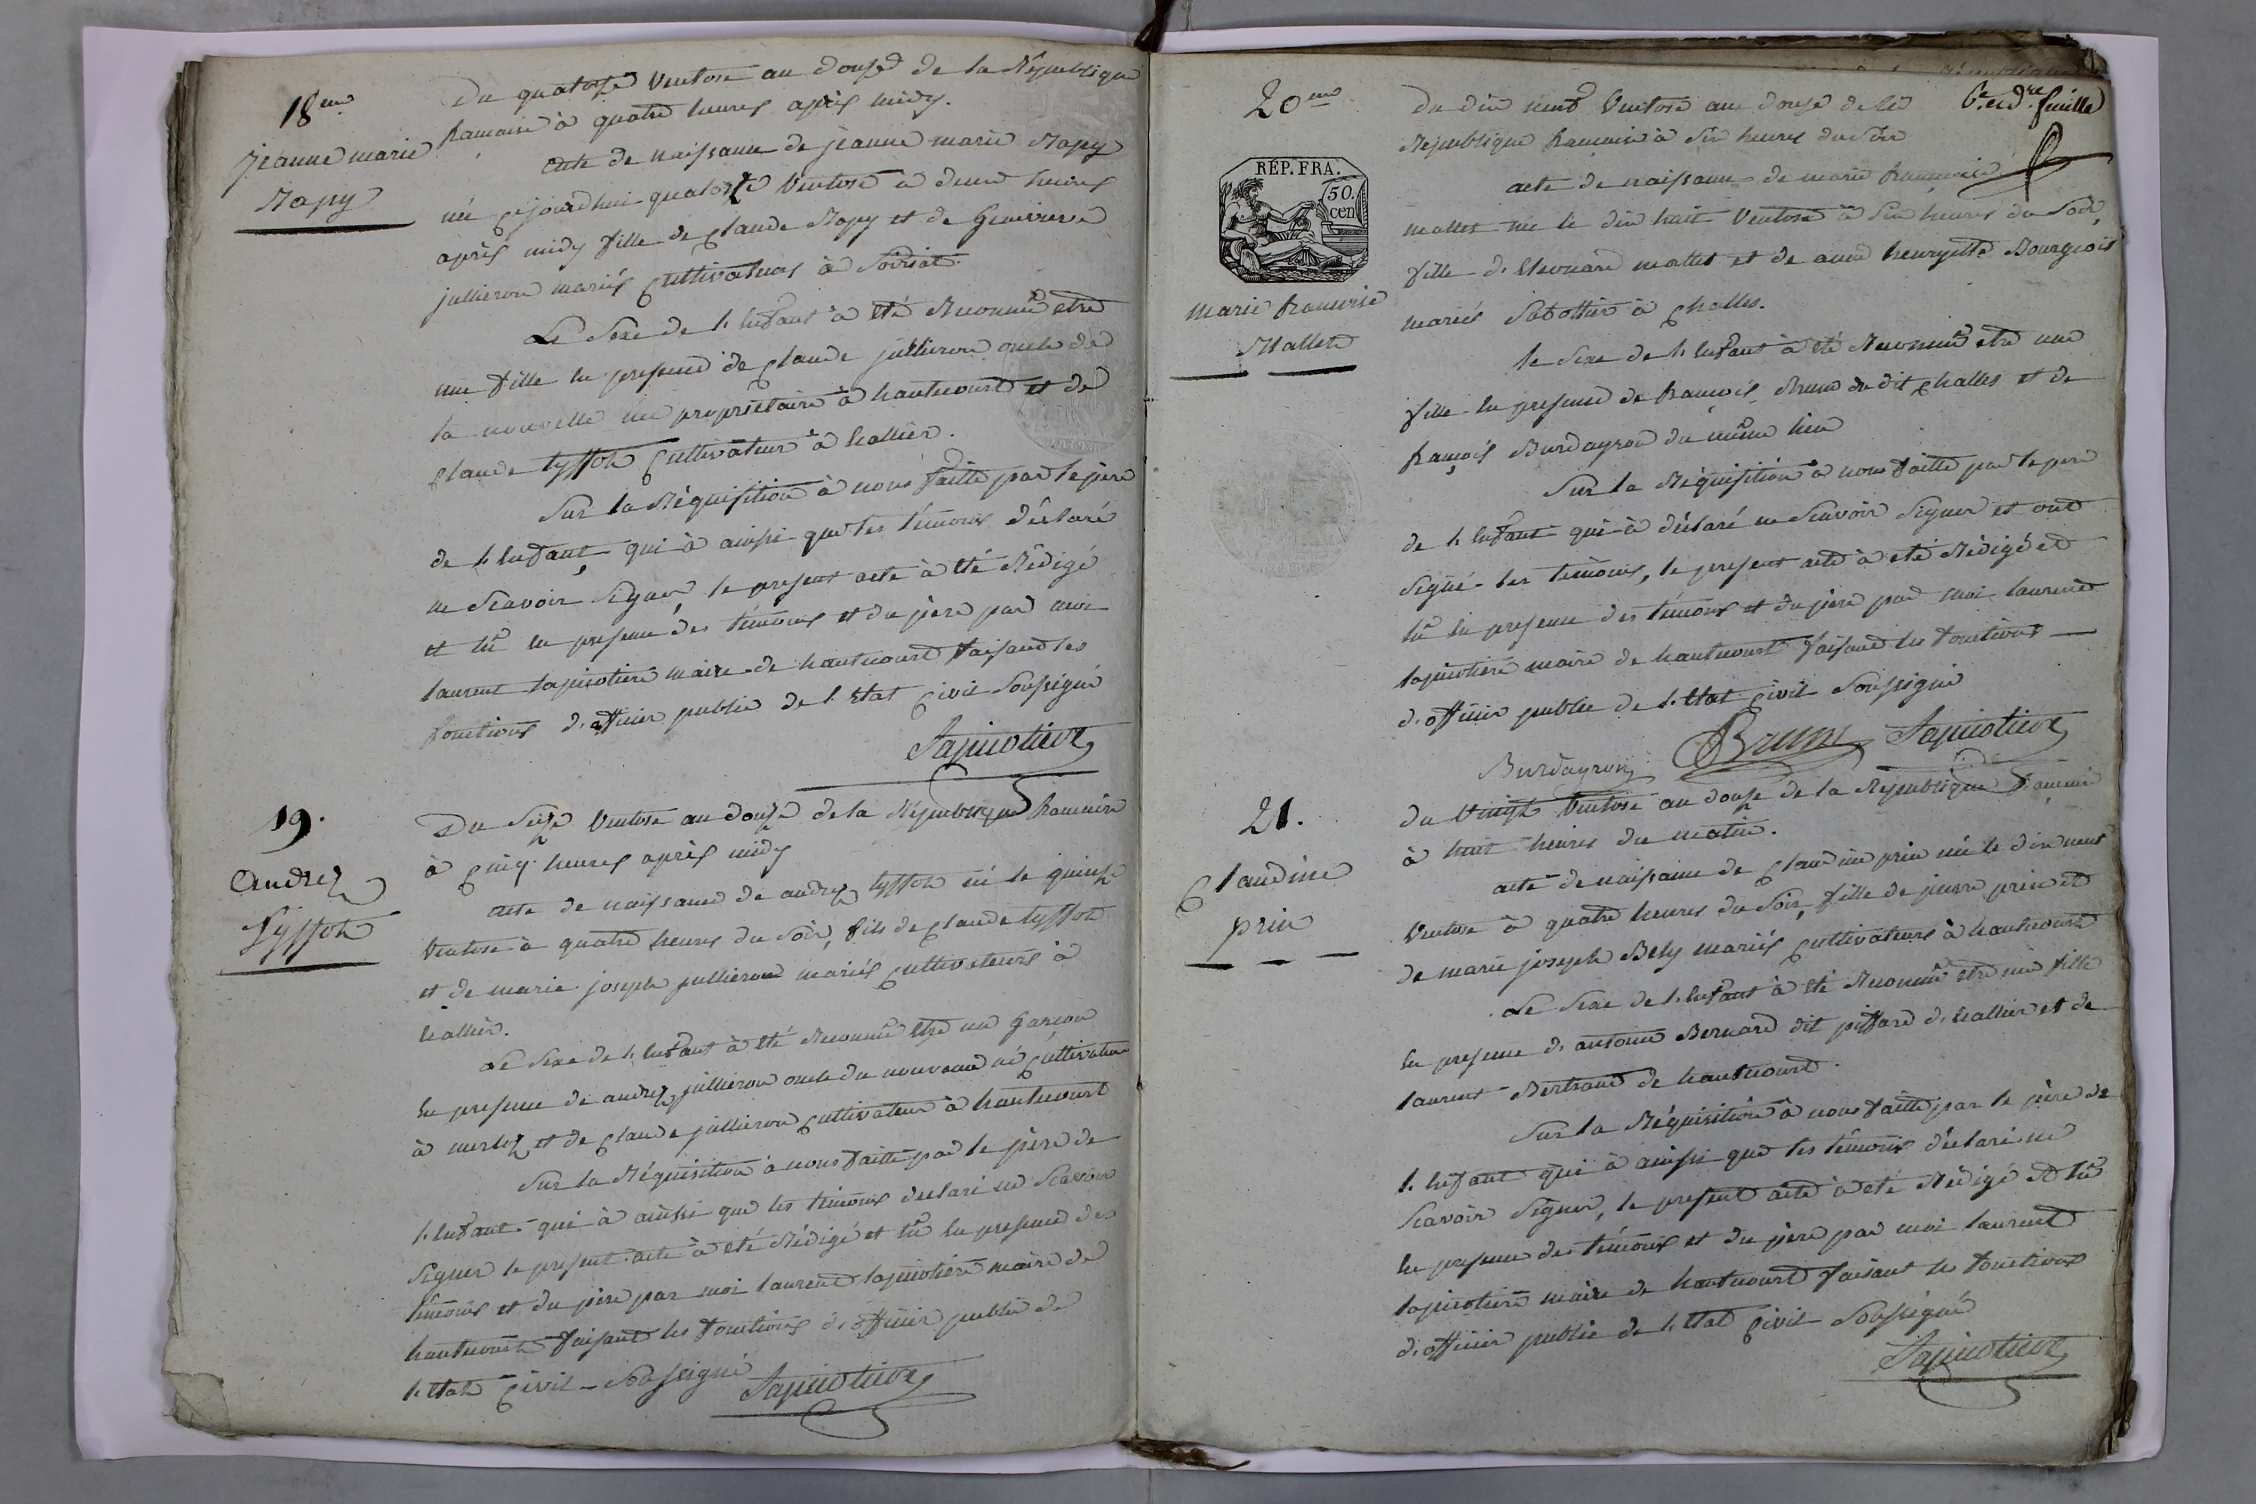 18me
Jeanne marie
Mapy
Du quatorze Ventose an douze de la République
francaise à quatre heures après midy.
acte de naissance de jeanne marie Mapy
née cejourdhui quatorze Ventose à deux heures
après midy fille de claude Mapy et de Genevieve
jullieron mariés cultivateurs à Soiriat.
Le Sexe de l. Enfant à été Reconnu etre
une fille en presence de claude jullieron oncle de
la nouvelle née propriétaire à hautecourt et de
claude tyssot cultivateur à hallier.
Sur la Réquisition à nous faitte par le père
de l. Enfant, qui à ainssi que les témoins déclaré
ne Scavoir Signer, le present acte à été Rédigé
et lû en presence des témoins et du père par moi
laurent lapierotiere maire de hautecourt faisant les
fonctions d. officier public de l. Etat civil Soussigné
19.
andrez
tyssot
Du Seize Ventose an douze de la République francaise
à cinq heures après midy
acte de naissance de andrez tyssot né le quinze
Ventose à quatre heures du Soir, fils de claude tyssot
et de marie joseph jullieron mariés cultivateurs à
hallier.
Le Sexe de l. Enfant à été Reconnu etre un Garçon
en presence de andrez jullieron oncle du nouveau né cultivateur
à merloz et de claude jullieron cultivateur à hautecourt
Sur la Réquisition à nous faitte par le père de
l. Enfant qui à ainssi que les témoins declaré ne Scavoir
Signer le present acte à été Rédigé et lû en presence des
témoins et du père par moi laurent lapierotiere maire de
hautecourt faisant les fonctions d. officier public de
l. Etat civil Soussigné
20me
RÉP. FRA.
50.
cen
marie francoise
Mallet
6e et dre feuille
Du dix neuf Ventose an douze de la
République francaise à Six heures du Soir
acte de naissance de marie francoise
mallet née le dix huit Ventose à Six heures du Soir,
fille d. Eleonard mallet et de anne henryette Bourgeois
mariés Sabottier à challes.
le Sexe de l. Enfant à été Reconnu etre une
fille en presence de francois Brun du dit challes et de
françois Burdayron du même lieu
Sur la Réquisition à nous faitte par le pere
de l. Enfant qui à déclaré ne Scavoir Signer et ont
Signé les témoins, le present acte à été Rédigé et
lû en presence des témoins et du père par moi laurent
lapierotiere maire de hautecourt faisant les fonctions
d. officier public de l. Etat civil Soussigné
Burdayron Brun
21.
claudine
prin
du Vingt Ventose an douze de la République francaise
à huit heures du matin.
acte de naissance de claudine prin née le dix neuf
Ventose à quatre heures du Soir, fille de pierre prin et
de marie joseph Bely mariés cultivateurs à hautecourt
Le Sexe de l. Enfant à été Reconnu etre une fille
en presence d. antoine Bernard dit piffard d. hallier et de
laurent Bertrand de hautecourt.
Sur la Réquisition à nous faitte par le père de
l. Enfant qui à ainssi que les témoins déclaré ne
Scavoir Signer, le present acte à été Rédigé et lû
en presence des témoins et du père par moi laurent
lapierotiere maire de hautecourt faisant les fonctions
d. officier public de l. Etat civil Soussigné